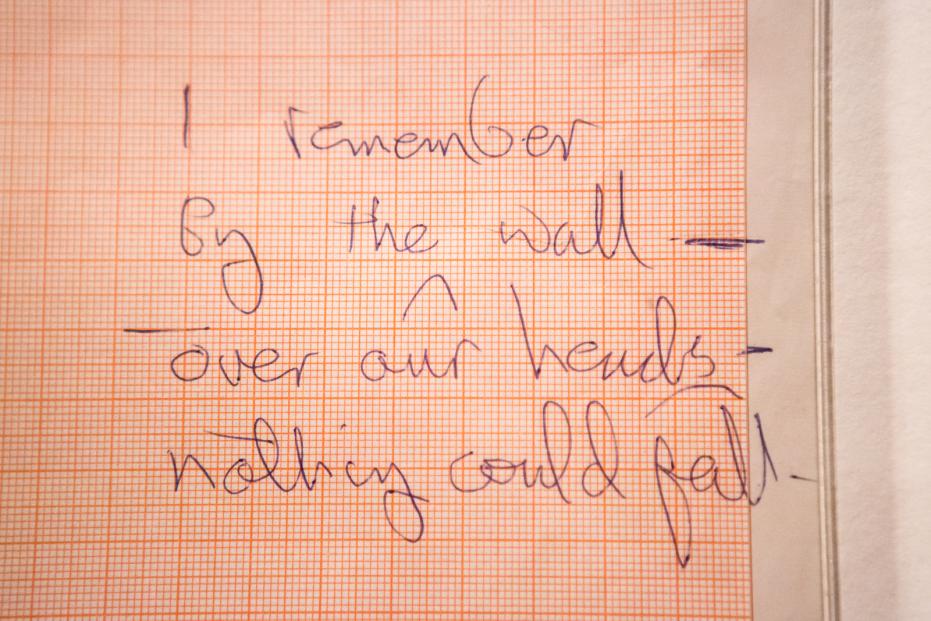 I remember
By the wall —
— over our heads -
nothing could fall.